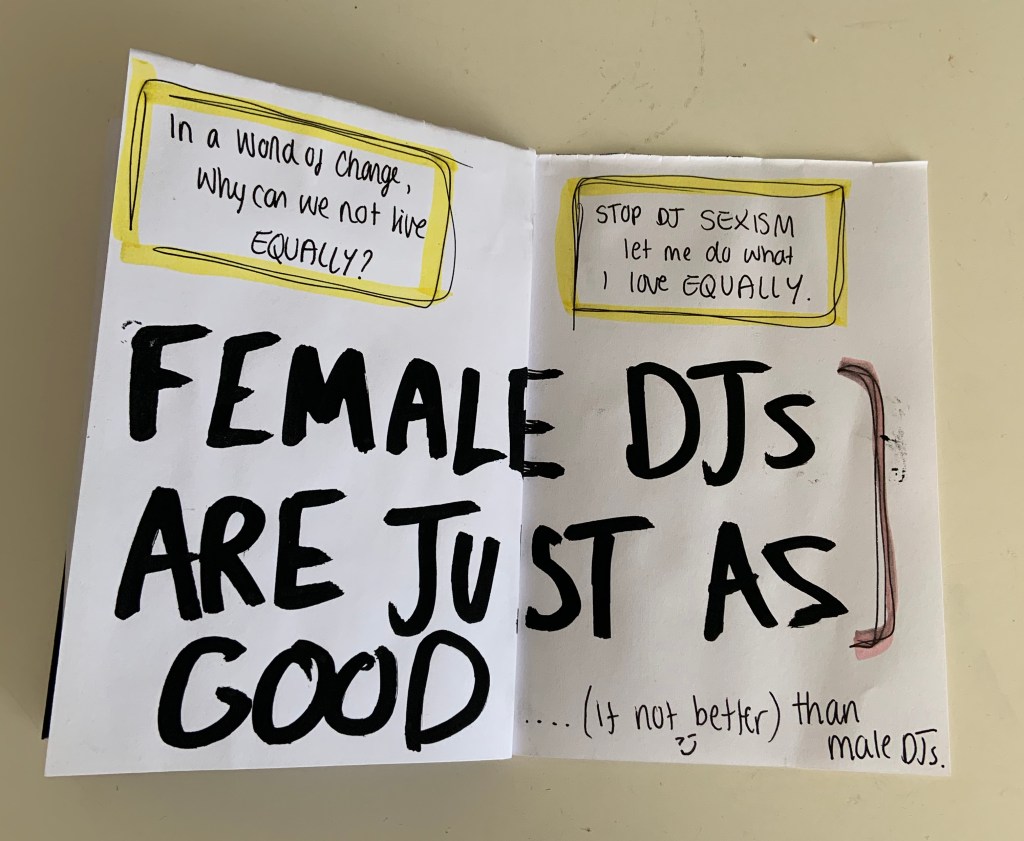 In a world of change,
Why can we not live
EQUALLY?
STOP DJ SEXISM
let me do what
I love EQUALLY.
FEMALE DJs
ARE JUST AS
GOOD
.... (if not better) than
male DJs.